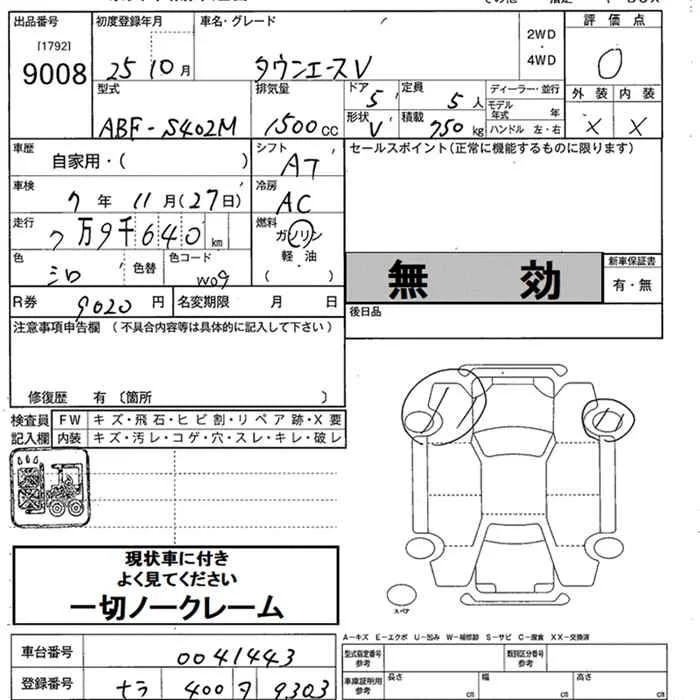 出品番号 初度登録年月 車名・グレード 2WD・4WD 評価点
[1792]
9008 25 10月 タウンエースV 0
型式 排気量 ドア 定員 ディーラー・並行 外装 内装
ABF-S402M 1500cc 5 5人 モデル年式 年 × ×
形状 積載
V 750kg ハンドル 左・右
車歴 自家用・( ) シフト AT セールスポイント(正常に機能するものに限ります)
車検 7年 11月(27日) 冷房 AC
走行 7万9千640km 燃料 ガソリン
軽油
( )
色 シロ 色替 色コード W09
無効 新車保証書
有・無
R券 9020円 名変期限 月 日 後日品
注意事項申告欄 (不具合内容等は具体的に記入して下さい)
修復歴 有 (箇所 )
検査員 FW キズ・飛石・ヒビ割・リペア跡・X要
記入欄 内装 キズ・汚レ・コゲ・穴・スレ・キレ・破レ
現状車に付き
よく見てください
一切ノークレーム
スペア
A-キズ E-エクボ U-凹み W-補修跡 S-サビ C-腐食 XX-交換済
車台番号 0041443 型式指定番号 参考 類別区分番号 参考
登録番号 ナラ 400 9303 車庫証明用 参考 長さ cm 幅 cm 高さ cm